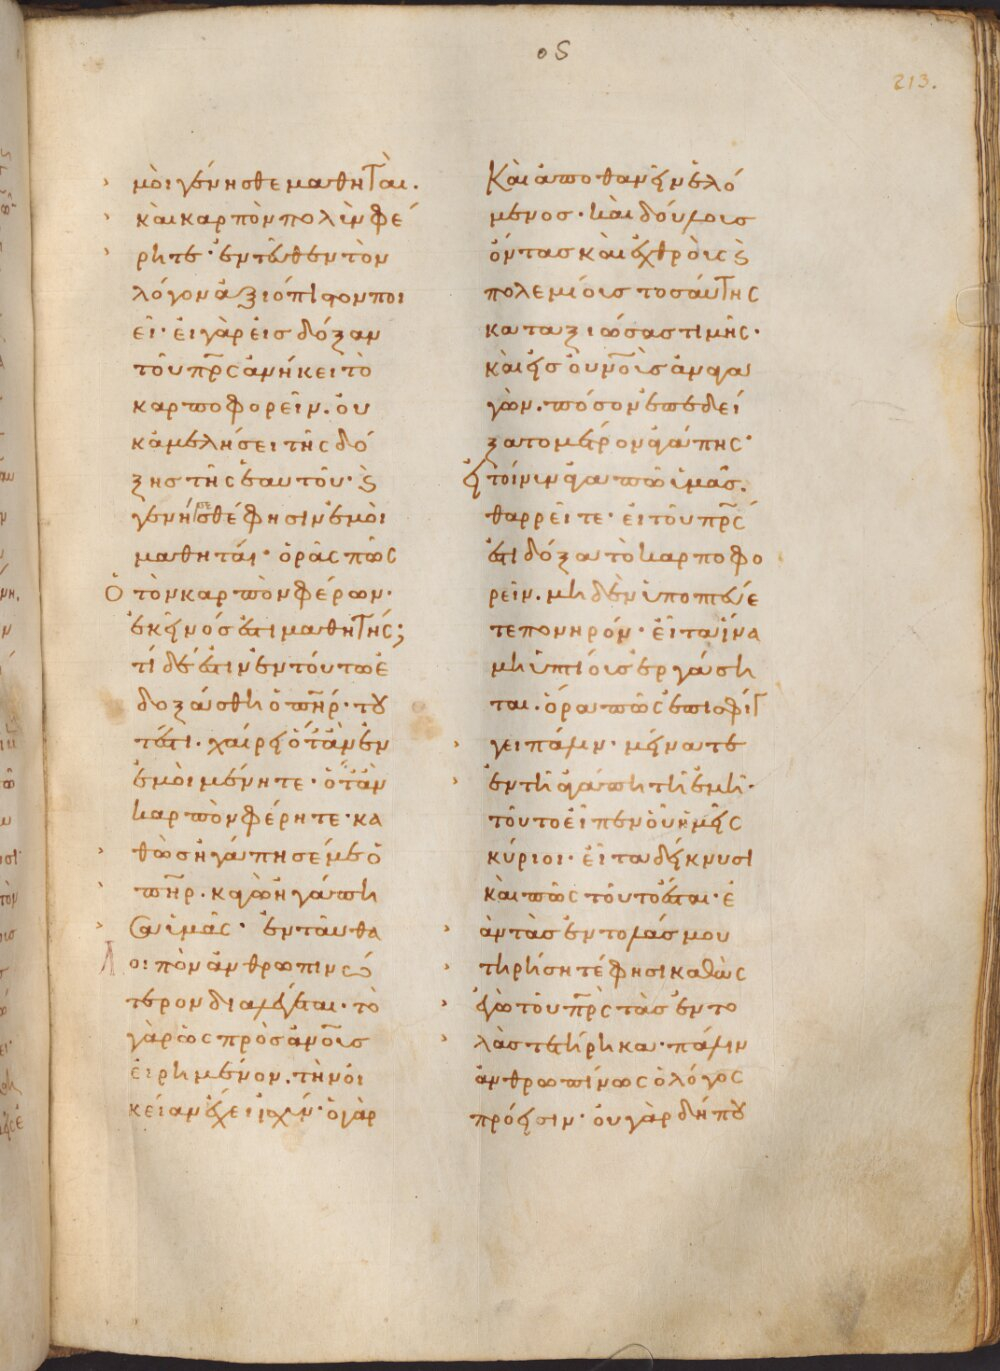 οϛ
213.
μοὶ γένησθε μαθηταὶ.
καὶ καρπὸν πολὺν φέ
ρητε· ἐντεῦθεν τὸν
λόγον ἀξιόπιστον ποι
εῖ· εἰ γὰρ εἰς δόξαν
τοῦ πρς ἀνήκει τὸ
καρποφορεῖν. οὐ
κ ἀμελήσει τῆς δό
ξης τῆς ἑαυτοῦ· ϗ
γένησθέ φησιν ἐμοὶ
μαθηταί· ὁρᾶς πῶς
ὁ τὸν καρπὸν φέρων·
ἐκεῖνός ἐστι μαθητής;
τί δέ ἐστιν ἐν τούτω ἐ
δοξάσθη ὁ πηρ· του
τέστι· χαίρει ὅταν ἐν
ἐμοὶ μένητε· ὅταν
καρπὸν φέρητε· κα
θὼς ἠγάπησέ με ὁ
πηρ. κἀγὼ ἠγάπη
σα ὑμᾶς· ἐνταῦθα
λοιπὸν ἀνθρωπινώ
τερον διαλέγεται· τὸ
γὰρ ὡς πρὸς ἀνους
εἰρημένον. τὴν οἰ
κείαν ἔχει ἰσχύν· ὁ γὰρ
Καὶ ἀποθανεῖν ἑλό
μενος· καὶ δούλους
ὄντας καὶ ἐχθροὺς ϗ
πολεμίους τοσαύτης
καταξιώσας τιμῆς·
καὶ εἰς οὐνους ἀναγα
γὼν. πόσον ἐπεδεί
ξατο μέτρον ἀγάπης·
εἰ τοίνυν ἀγαπῶ ὑμᾶς.
θαρρεῖτε· εἰ τοῦ πρς
ἐστι δόξα τὸ καρποφο
ρεῖν. μηδὲν ὑποπτεύε
τε πονηρόν· εἶτα ἵνα
μὴ ὑπτίους ἐργάση
ται. ὅρα πῶς ἐπισφίγ
γει πάλιν· μείνατε
ἐν τῆ ἀγάπη τῆ ἐμῆ·
τοῦτο εἶπεν οὗ ἡμεῖς
κύριοι· εἶτα δείκνυσι
καὶ πῶς τοῦτο ἔσται· ἐ
ὰν τὰς ἐντολάς μου
τηρήσητέ φησι καθὼς
ἐγὼ τοῦ πρς τὰς ἐντο
λὰς τετήρηκα· πάλιν
ἀνθρωπίνως ὁ λόγος
πρόεισιν· οὐ γὰρ δήπου